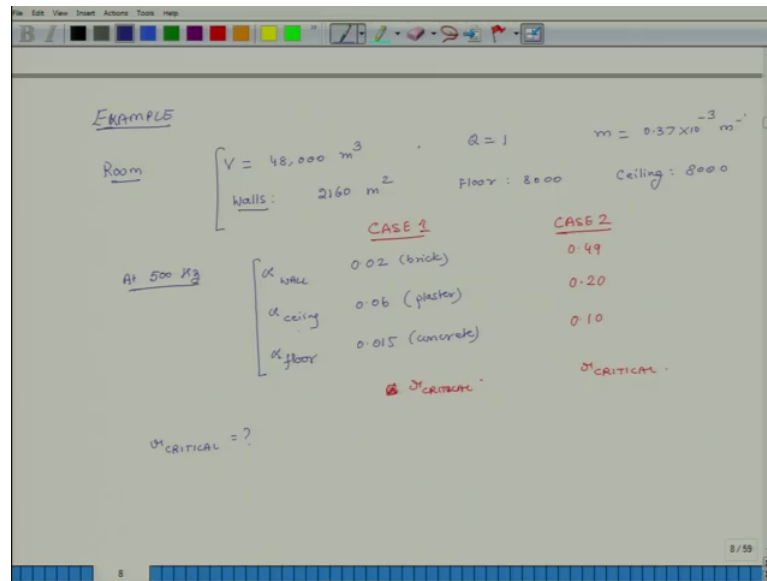 File Edit View Insert Actions Tools Help
B I
EXAMPLE
Room V = 48,000 m³ Q = 1 m = 0.37 × 10⁻³ m⁻¹
Walls: 2160 m² Floor: 8000 Ceiling: 8000
CASE 1 CASE 2
At 500 Hz α WALL 0.02 (brick) 0.49
α ceiing 0.06 (plaster) 0.20
α floor 0.015 (concrete) 0.10
r CRITICAL r CRITICAL.
r CRITICAL = ?
8 / 59
8